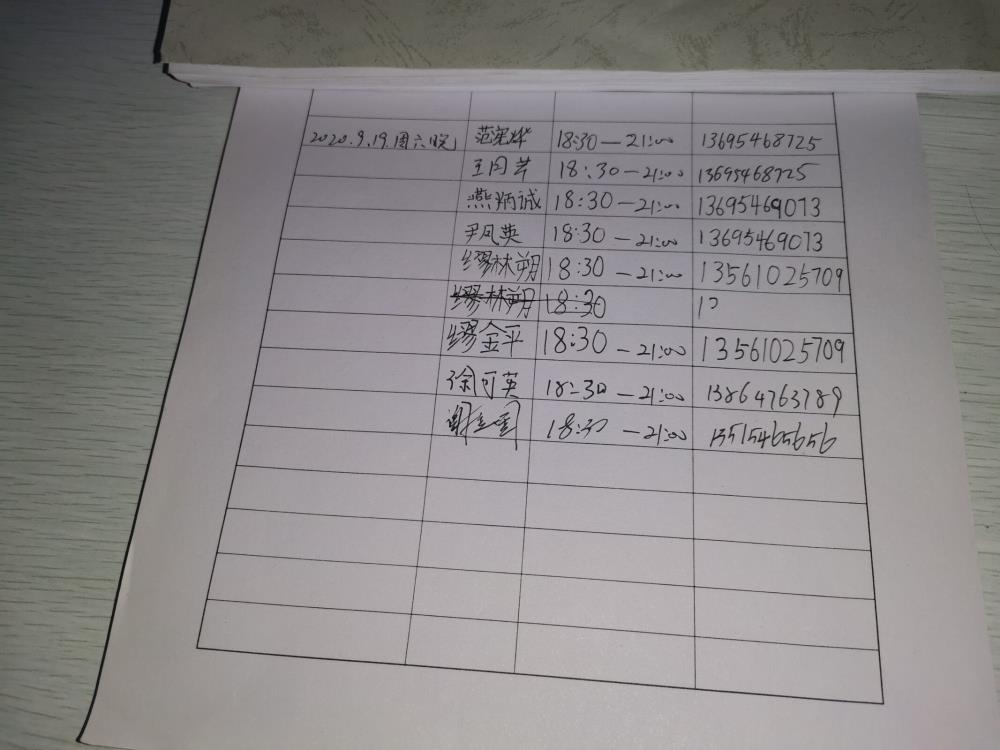 2020.9.19.周六晚 18:30—21:00 13695468725
18:30—21:00 13695468725
燕炳诚 18:30—21:00 13695469073
尹凤英 18:30—21:00 13695469073
缪林朔 18:30—21:00 13561025709
缪林朔 18:30 1
缪金平 18:30—21:00 13561025709
徐可英 18:30—21:00 13864763789
18:30—21:00 13515465656